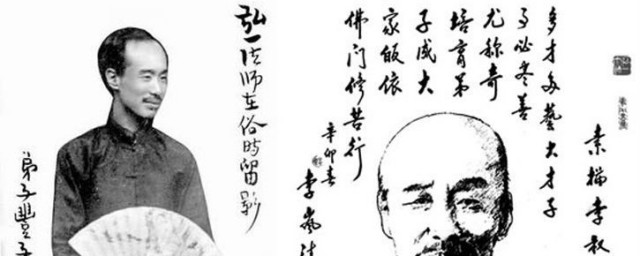 弘一法师在俗時留影
弟子豐子
素描李叔
多才多藝大才子
事必尽善
尤称奇
培育弟
子成大
家皈依
佛门修苦行
辛卯春
李嵐清